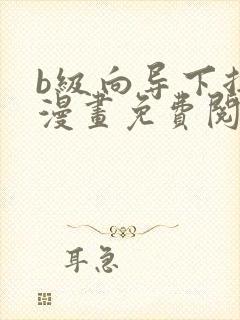 b級向导下拉
漫畫免費閱
耳急